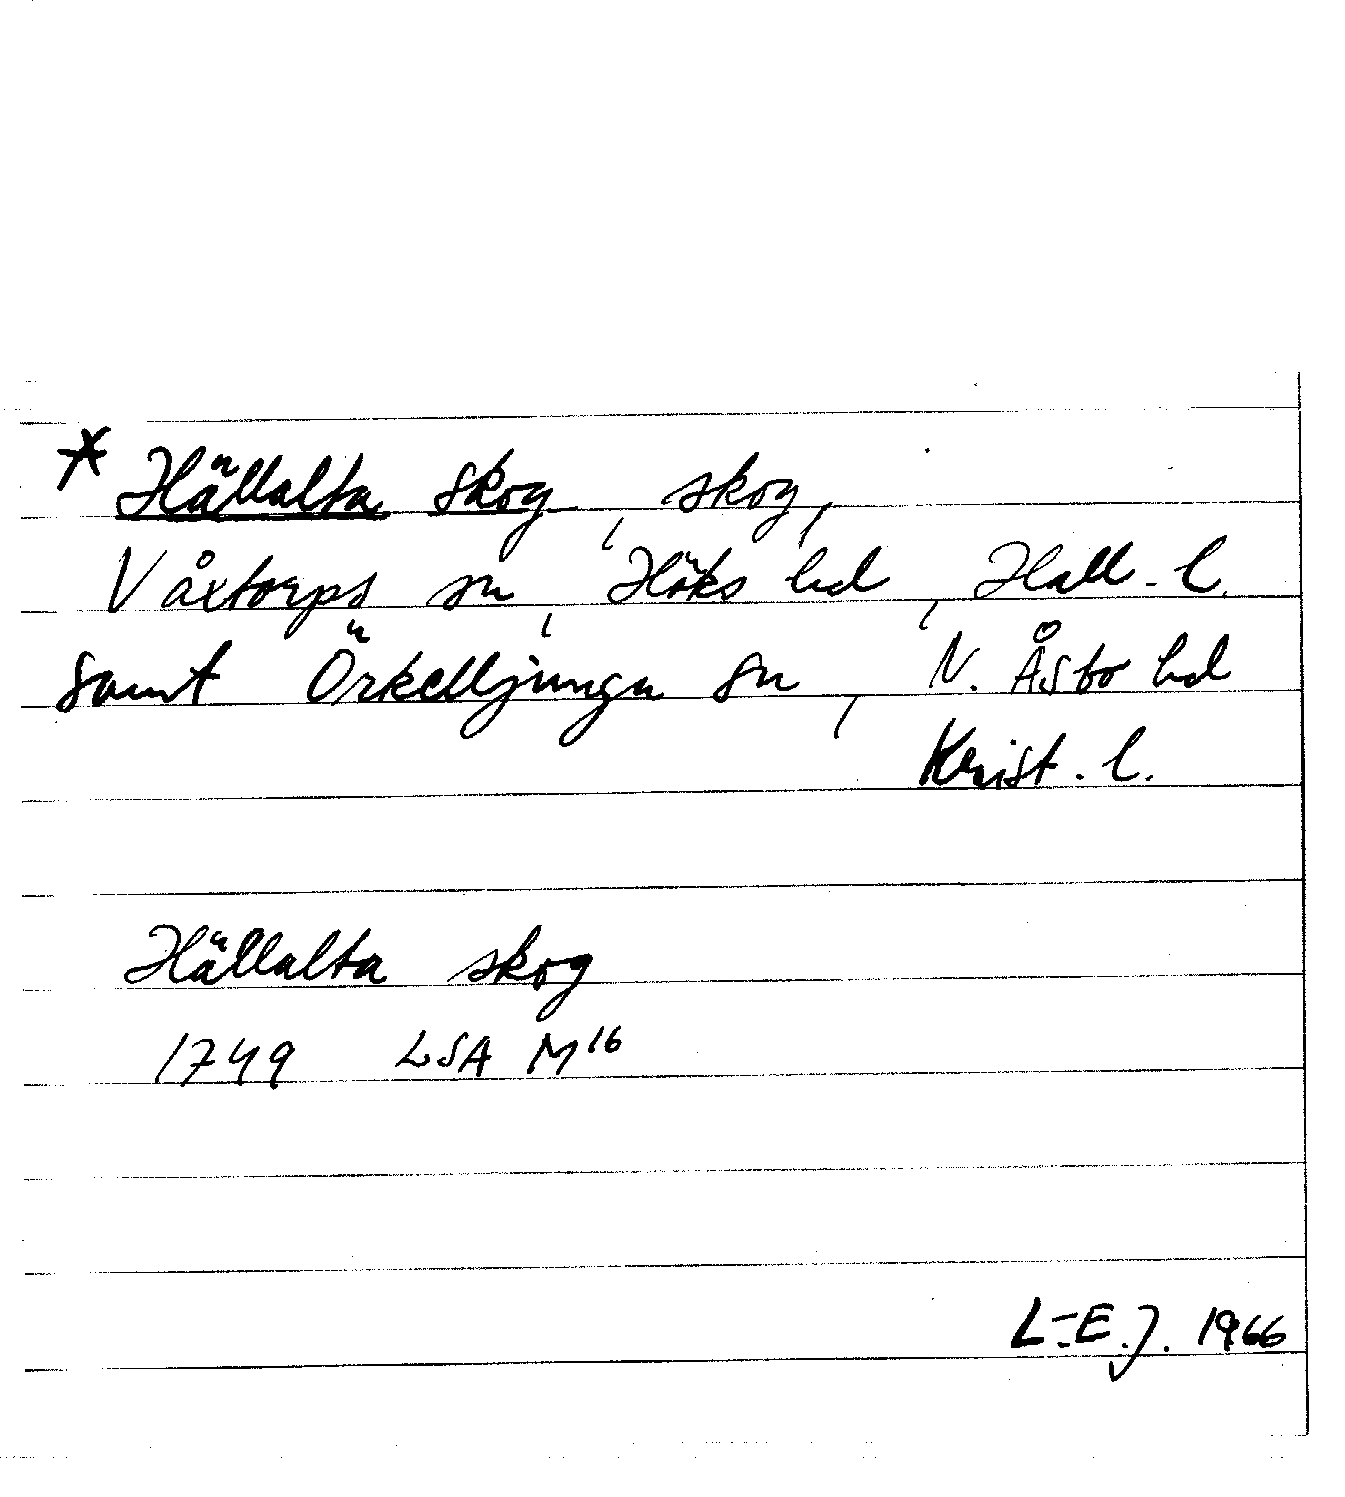 * Hällalta skog, skog,
Våxtorps sn, Höks hd, Hall. l.
samt Örkelljunga sn, N. Åsbo hd
Krist. l.
Hällalta skog
1749 LSA M16
L-E.J. 1966